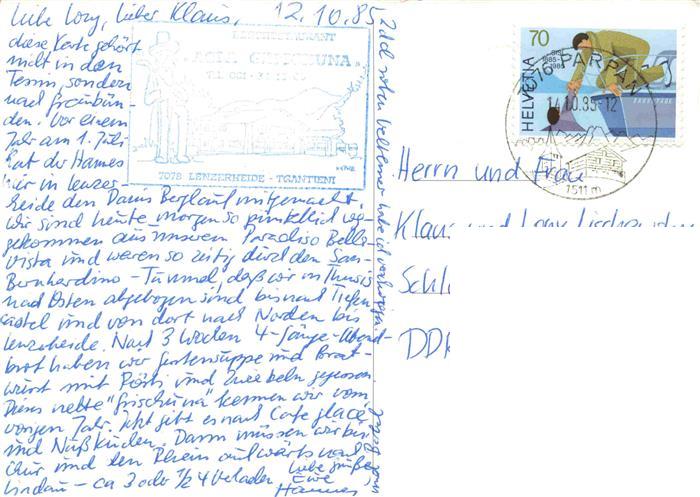 Liebe Lony, lieber Klaus,
12.10.85
diese Karte gehört
nicht in den
Tessin, sondern
nach Graubün-
den. Vor einem
Jahr am 1. Juli
hat der Hannes
hier in Lenzer-
heide den Danis Berglauf mitgemacht.
Wir sind heute morgen so pünktlich weg-
gekommen aus unserem Paradiso Bella-
vista und waren so zeitig durch den San-
Bernhardino-Tunnel, daß wir in Thusis
nach Osten abgebogen sind bis nach Tiefen-
castel und von dort nach Norden bis
Lenzerheide. Nach 3 Wochen 4-Gänge-Abend-
brot haben wir Gerstensuppe und Brat-
wurst mit Rösti und Zwiebeln gegessen.
Diese nette "Grischuna" kennen wir vom
vorigen Jahr. Jetzt gibt es noch Cafe glacé
und Nußkuchen. Dann müssen wir bis
Chur und den Rhein auf wärts nach
Lindau - ca 3 oder 1/2 4 Verladen.
Liebe Grüße
Eure
Hannes
RESTAURANT
GRISCHUNA
TEL. 081 - 34
7078 LENZERHEIDE - TGANTIENI
HELVETIA
70
1885-
1985
7076 PARPAN
14.10.85-12
1511 m
Herrn und Frau
Klaus und Lony
Schl
DDR